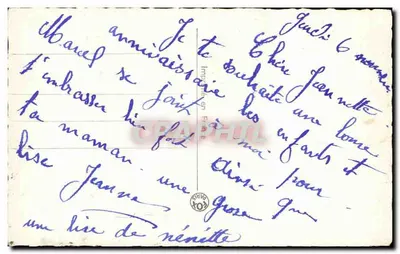 Jeudi 6 novembre
Chère Jeannette
Je te souhaite une bonne
anniversaire les enfants et
Marcel se joint à moi pour
t'embrasser bien fort ainsi que
ta maman. une grosse
bise Jeanne
une bise de nénette
CARTOPHIL